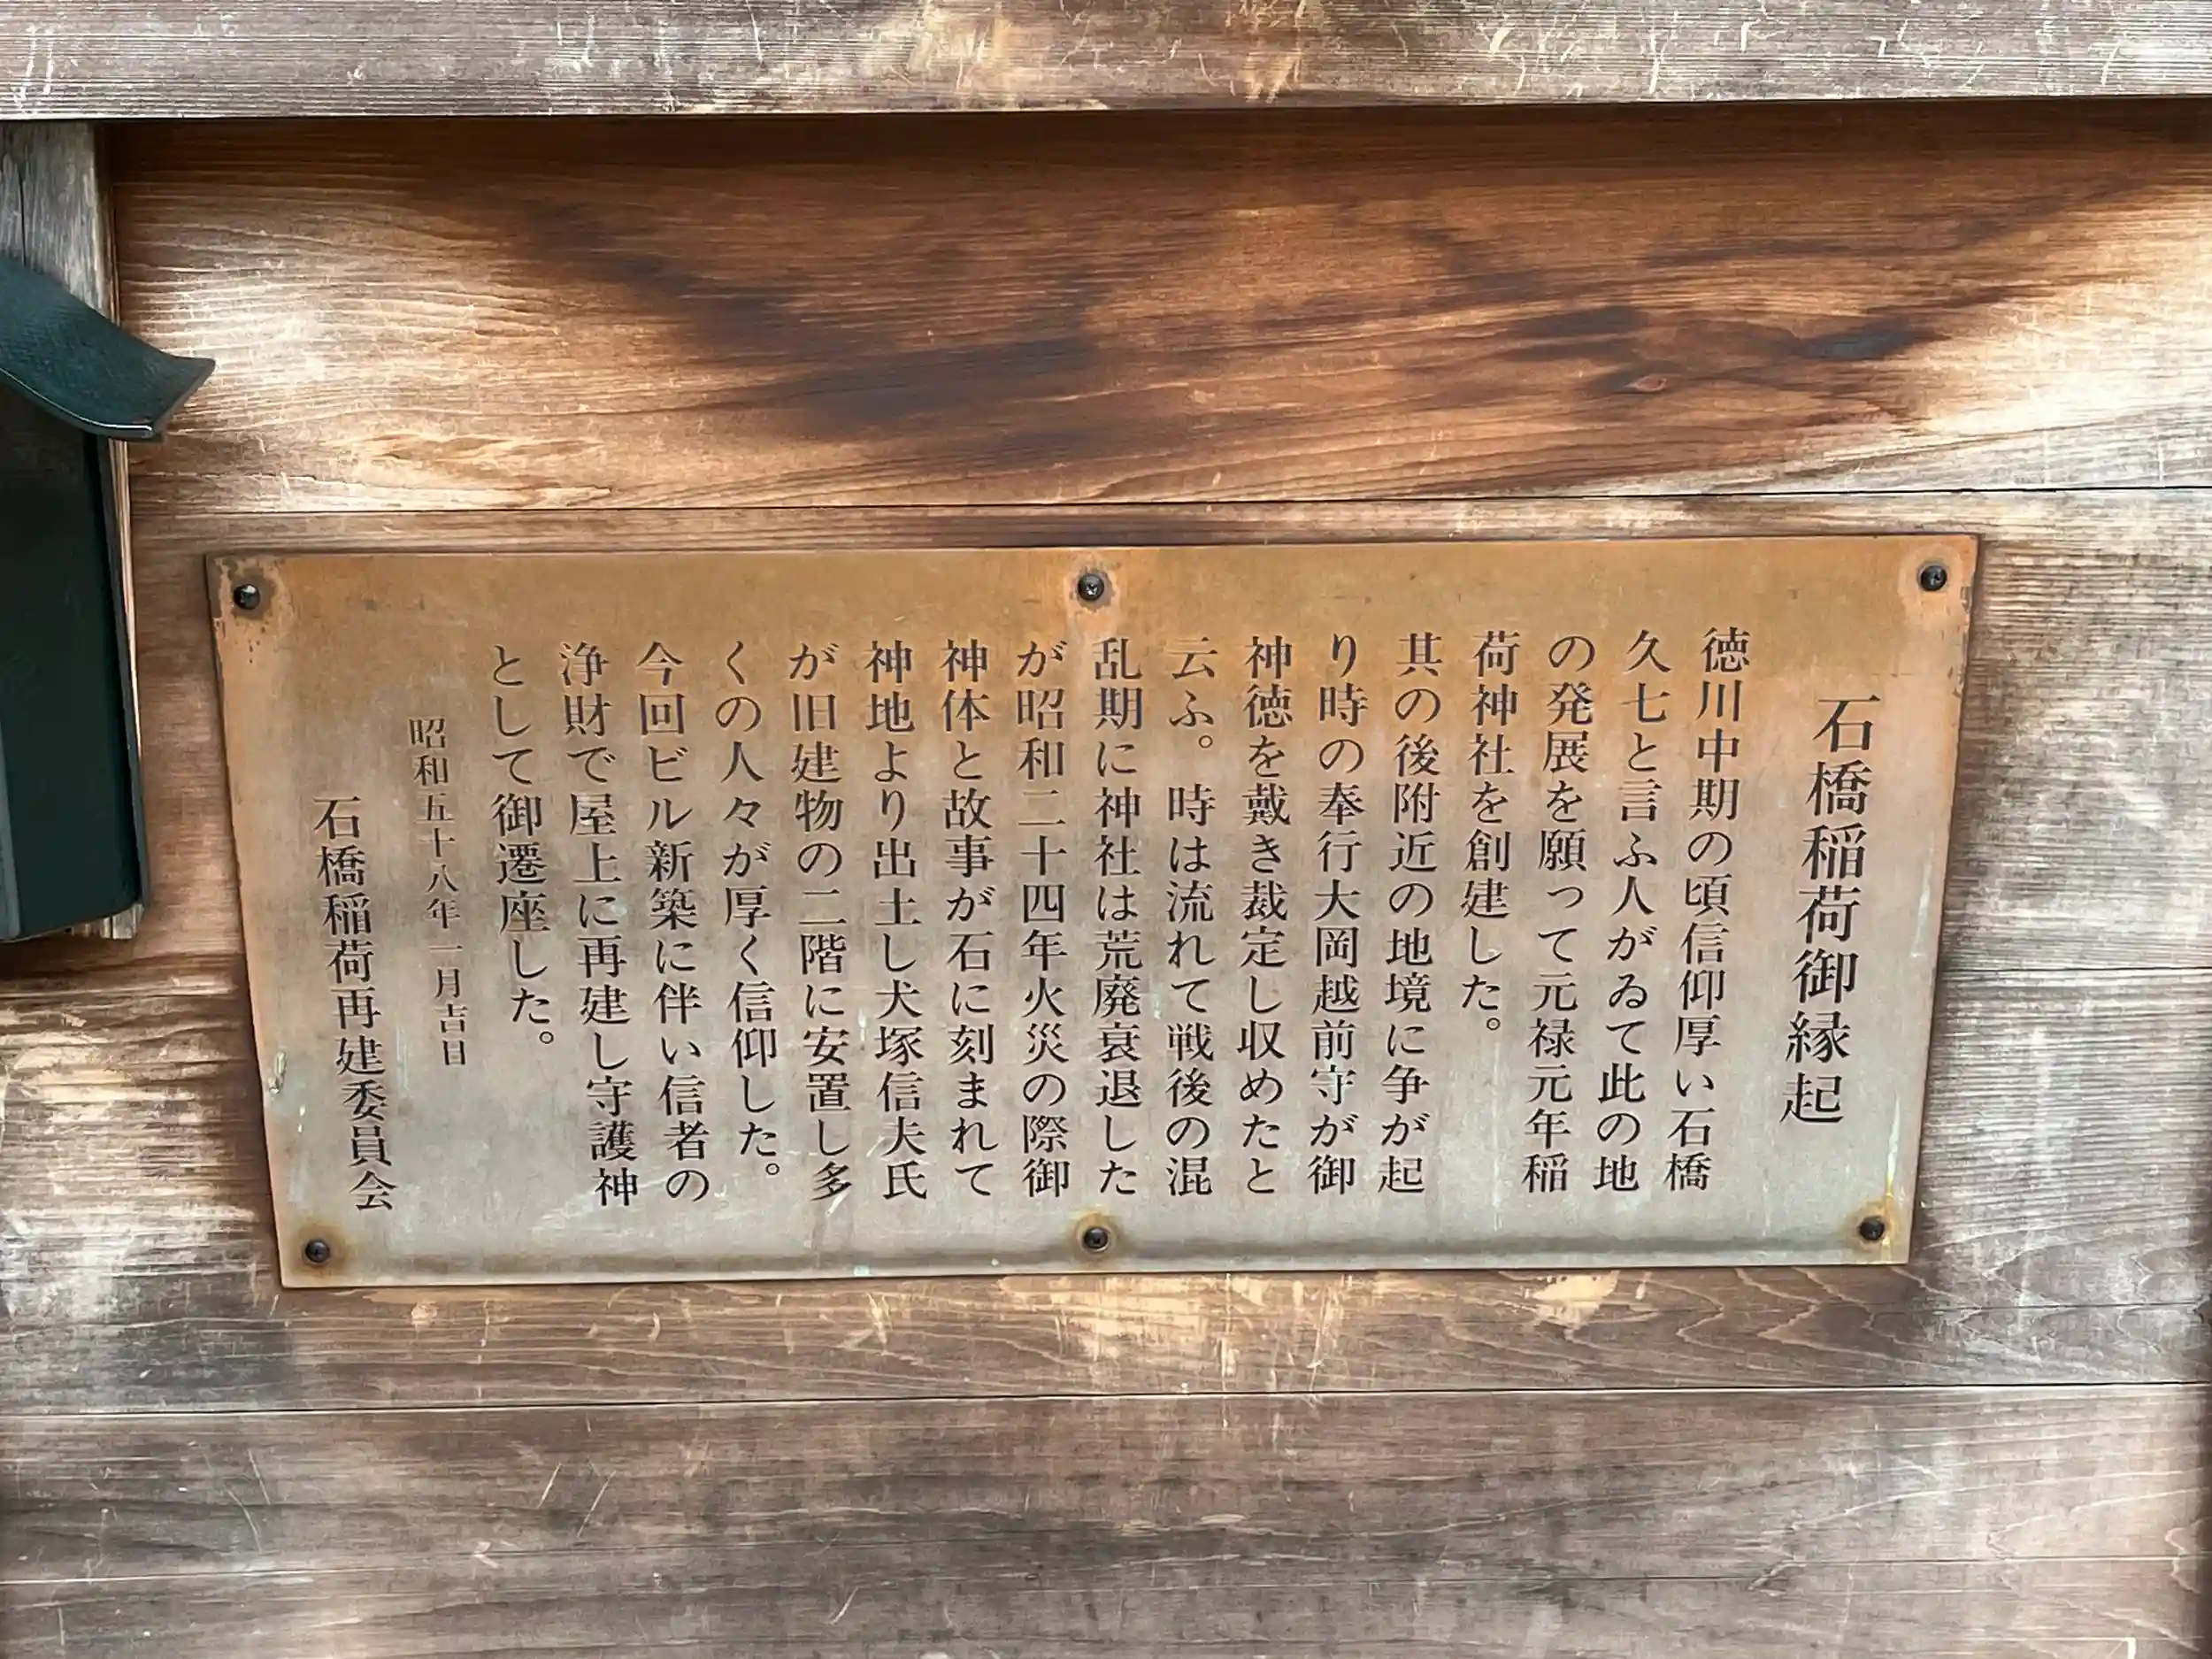 石橋稲荷御縁起
徳川中期の頃信仰厚い石橋
久七と言ふ人がゐて此の地
の発展を願って元禄元年稲
荷神社を創建した。
其の後附近の地境に争が起
り時の奉行大岡越前守が御
神徳を戴き裁定し収めたと
云ふ。時は流れて戦後の混
乱期に神社は荒廃衰退した
が昭和二十四年火災の際御
神体と故事が石に刻まれて
神地より出土し犬塚信夫氏
が旧建物の二階に安置し多
くの人々が厚く信仰した。
今回ビル新築に伴い信者の
浄財で屋上に再建し守護神
として御遷座した。
昭和五十八年一月吉日
石橋稲荷再建委員会